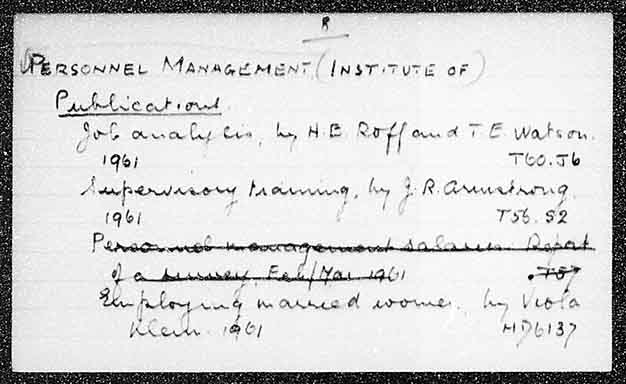 R
PERSONNEL MANAGEMENT (INSTITUTE OF)
Publications.
Job analysis, by H.E. Roff and T.E. Watson.
1961 T60.J6
Supervisory training, by J.R. Armstrong.
1961 T56.S2
Personnel management salaries. Report
of a survey, Feb/Mar 1961 .T57
Employing married women, by Viola
Klein. 1961 HD6137